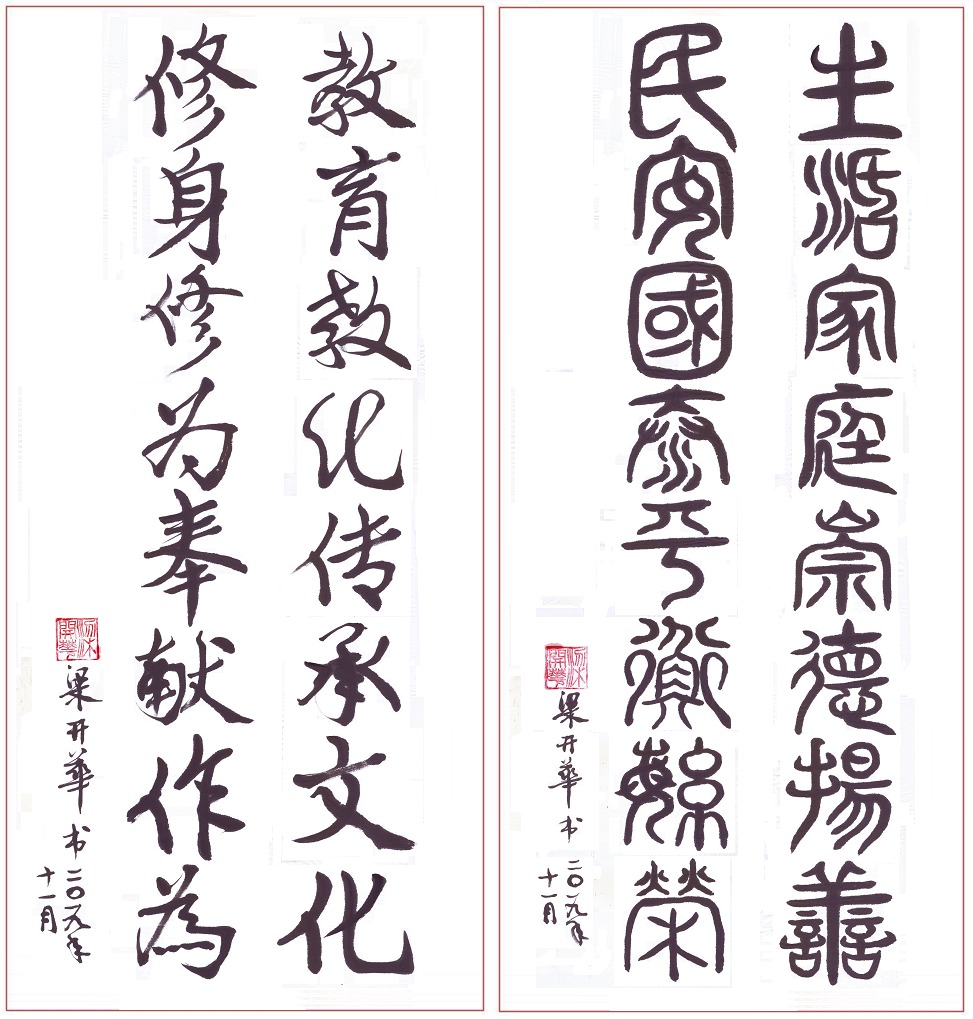 生活家庭崇德揚善
民安國泰平衡繁榮
梁开華书二〇一九年
十一月
教育教化传承文化
修身修为奉献作為
梁开華书二〇一九年
十一月